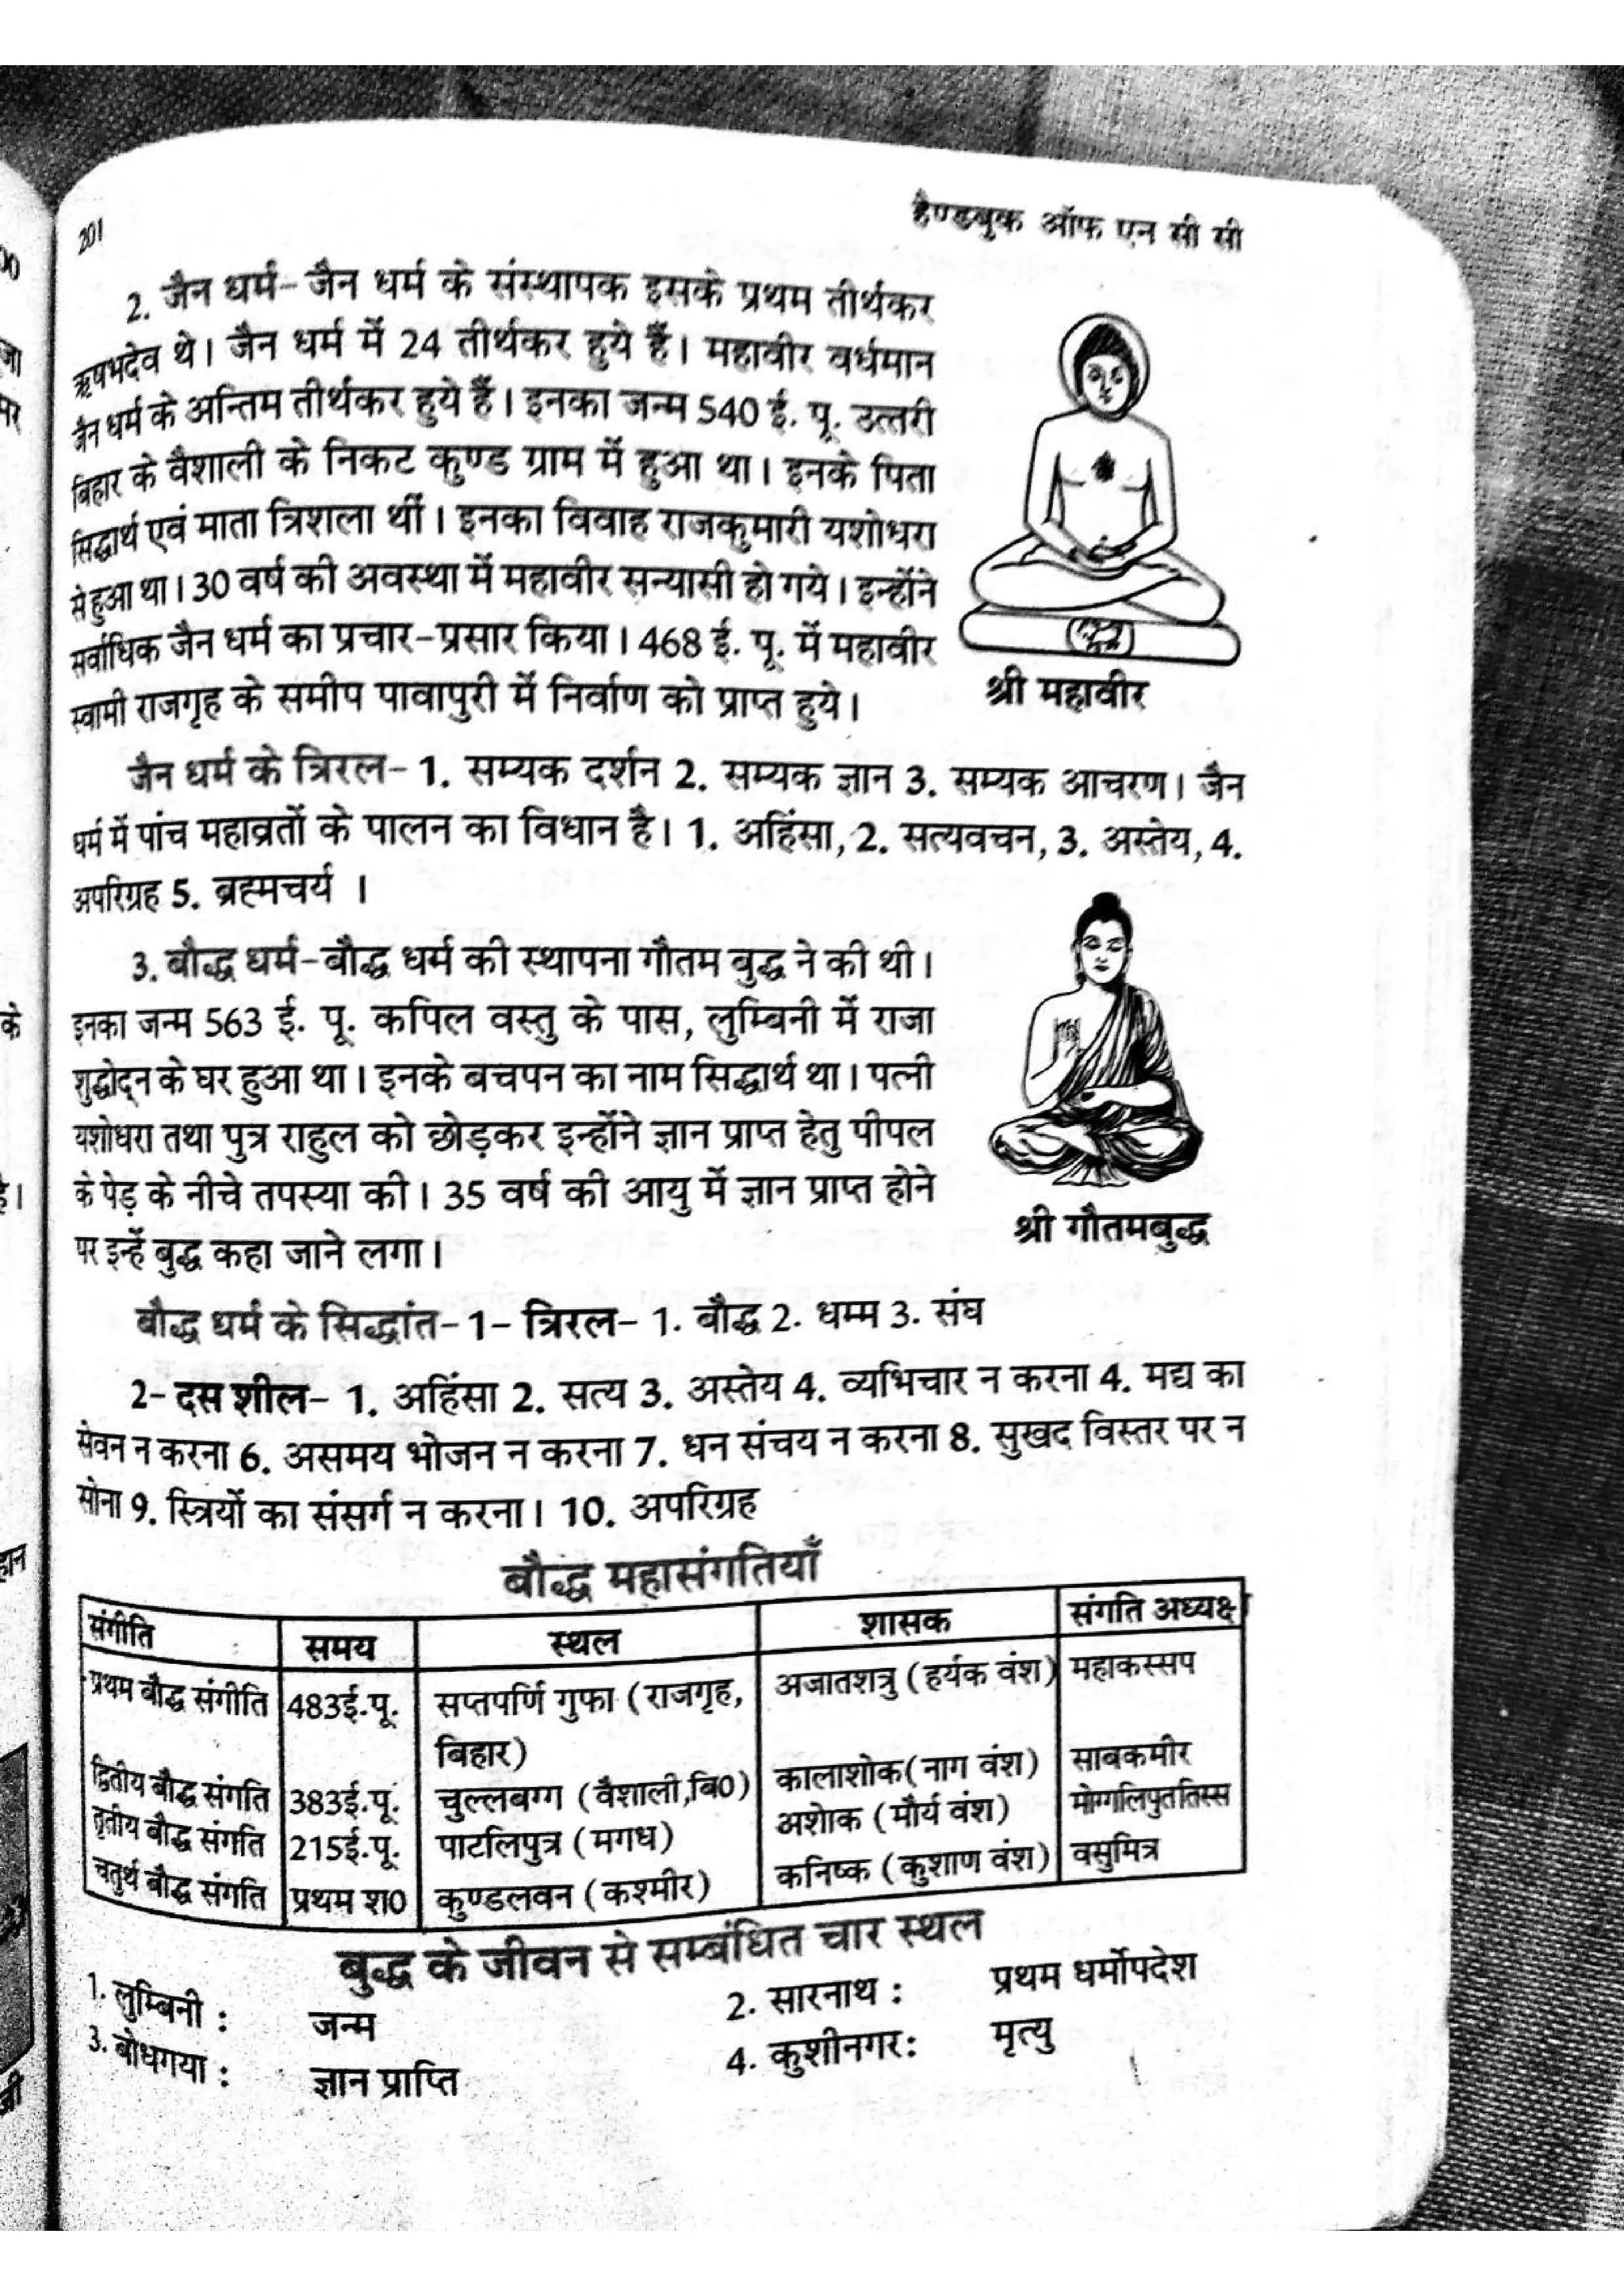 201
हैण्डबुक ऑफ एन सी सी
2. जैन धर्म- जैन धर्म के संस्थापक इसके प्रथम तीर्थकर
ऋषभदेव थे। जैन धर्म में 24 तीर्थकर हुये हैं। महावीर वर्धमान
जैन धर्म के अन्तिम तीर्थकर हुये हैं। इनका जन्म 540 ई. पू. उत्तरी
बिहार के वैशाली के निकट कुण्ड ग्राम में हुआ था। इनके पिता
सिद्धार्थ एवं माता त्रिशला थीं। इनका विवाह राजकुमारी यशोधरा
से हुआ था। 30 वर्ष की अवस्था में महावीर सन्यासी हो गये। इन्होंने
सर्वाधिक जैन धर्म का प्रचार-प्रसार किया। 468 ई. पू. में महावीर
स्वामी राजगृह के समीप पावापुरी में निर्वाण को प्राप्त हुये।
श्री महावीर
जैन धर्म के त्रिरल- 1. सम्यक दर्शन 2. सम्यक ज्ञान 3. सम्यक आचरण। जैन
धर्म में पांच महाव्रतों के पालन का विधान है। 1. अहिंसा, 2. सत्यवचन, 3. अस्तेय, 4.
अपरिग्रह 5. ब्रह्मचर्य ।
3. बौद्ध धर्म-बौद्ध धर्म की स्थापना गौतम बुद्ध ने की थी।
इनका जन्म 563 ई. पू. कपिल वस्तु के पास, लुम्बिनी में राजा
शुद्धोद्न के घर हुआ था। इनके बचपन का नाम सिद्धार्थ था। पत्नी
यशोधरा तथा पुत्र राहुल को छोड़कर इन्होंने ज्ञान प्राप्त हेतु पीपल
के पेड़ के नीचे तपस्या की। 35 वर्ष की आयु में ज्ञान प्राप्त होने
पर इन्हें बुद्ध कहा जाने लगा।
श्री गौतमबुद्ध
बौद्ध धर्म के सिद्धांत- 1- त्रिरल- 1. बौद्ध 2. धम्म 3. संघ
2- दस शील- 1. अहिंसा 2. सत्य 3. अस्तेय 4. व्यभिचार न करना 4. मद्य का
सेवन न करना 6. असमय भोजन न करना 7. धन संचय न करना 8. सुखद विस्तर पर न
सोना 9. स्त्रियों का संसर्ग न करना। 10. अपरिग्रह
बौद्ध महासंगतियाँ
संगीति समय स्थल शासक संगति अध्यक्ष
प्रथम बौद्ध संगीति 483ई.पू. सप्तपर्णि गुफा (राजगृह, अजातशत्रु (हर्यक वंश) महाकस्सप
बिहार)
द्वितीय बौद्ध संगति 383ई.पू. चुल्लबग्ग (वैशाली,बि0) कालाशोक(नाग वंश) साबकमीर
तृतीय बौद्ध संगति 215ई.पू. पाटलिपुत्र (मगध) अशोक (मौर्य वंश) मोग्गलिपुततिस्स
चतुर्थ बौद्ध संगति प्रथम श0 कुण्डलवन (कश्मीर) कनिष्क (कुशाण वंश) वसुमित्र
बुद्ध के जीवन से सम्बंधित चार स्थल
1. लुम्बिनी : जन्म 2. सारनाथ : प्रथम धर्मोपदेश
3. बोधगया : ज्ञान प्राप्ति 4. कुशीनगर: मृत्यु